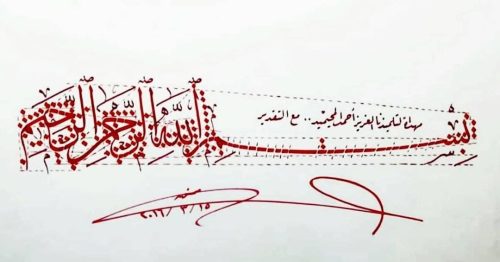 بسم الله الرحمن الرحيم
مهداة لتلميذنا العزيز أحمد .. مع التقدير
١٥ / ٣ / ٢٠١٦